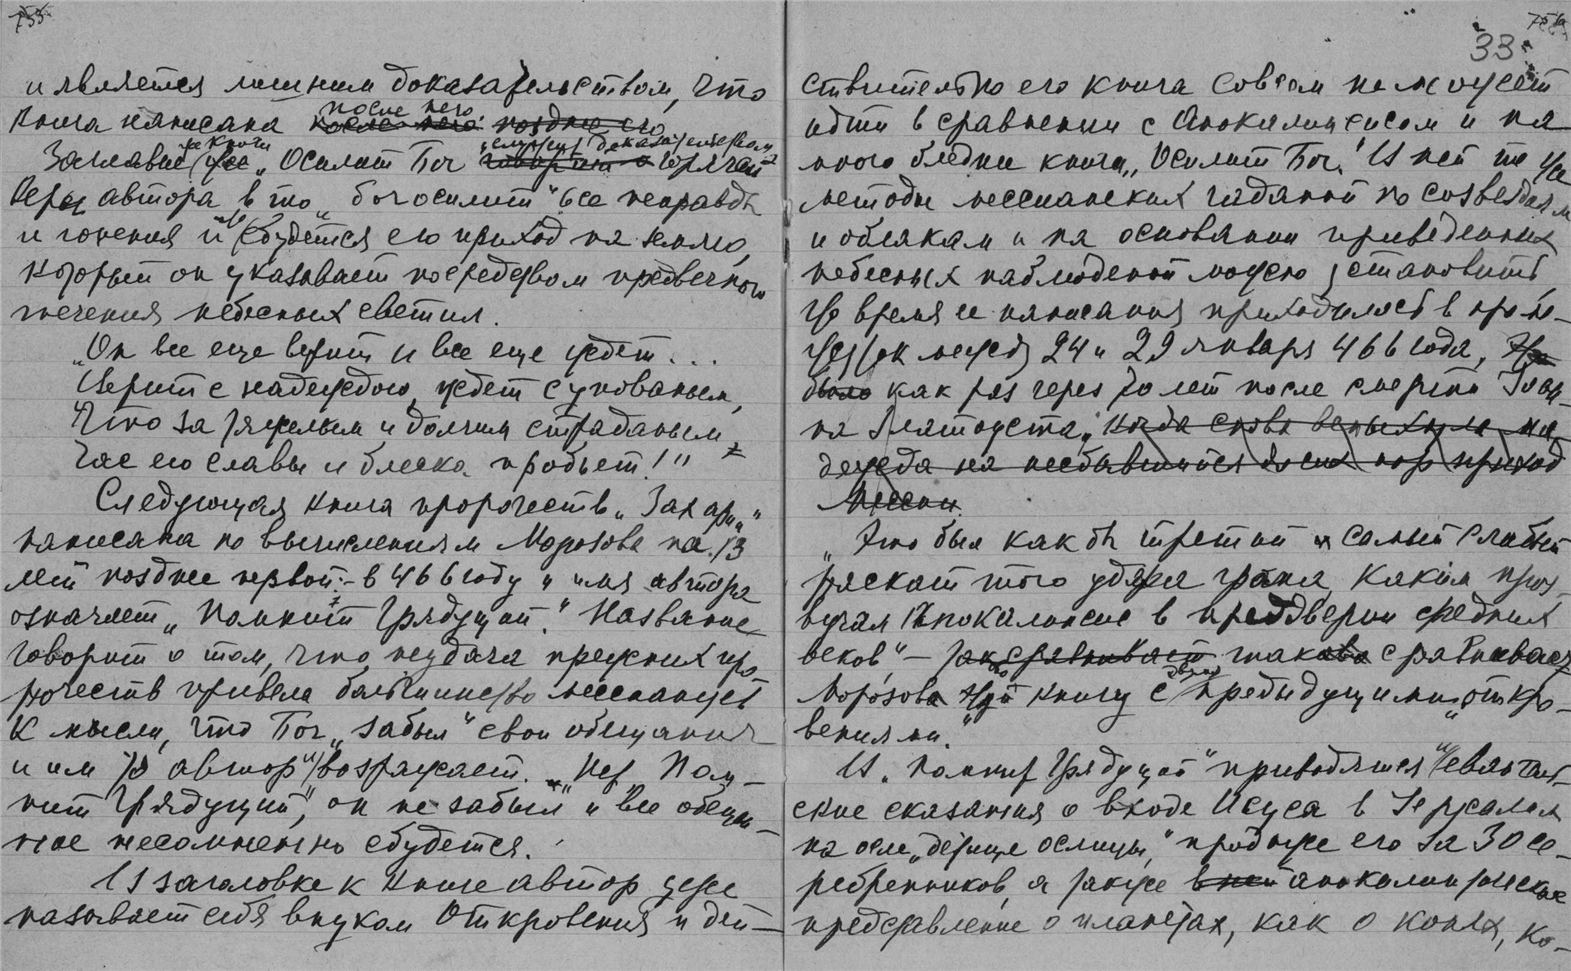 755
и является лишним доказательством, что
после него
книга написана после него позднее его
же книги служит доказательством
Заглавие же „Осилит Бог говорит о горячей
веры автора в то „бог осилит“ все неправды
и гонения и сбудется его приход на землю,
который он указывает посредством предвечного
течения небесных светил.
„Он все еще верит и все еще ждет...
Верит с надеждою, ждет с упованьем,
Что за тяжелым и долгим страданьем
Час его славы и блеска пробьет!“
Следующая книга пророчеств „Захария“
написана по вычислениям Морозова на 13
лет позднее первой:- в 466 году и имя автора
означает „Помнит Грядущий“. Название
говорит о том, что неудача прежних про-
рочеств привела большинство мессианцев
к мысли, что Бог „забыл“ свои обещания
и им то автор и возражает. „Нет, Пом-
нит Грядущий“, он не забыл и все обещан-
ное несомненно сбудется.
Из заголовке к книге автор даже
называет себя внуком Откровения и дей-
33
ствительно его книга совсем не может
идти в сравнении с Апокалипсисом и на
много бледнее книги „Осилит Бог“. Из неё те же
методы мессианских гаданий по созвездиям
и облакам и на основании приведенных
небесных наблюдений можно установить,
что время ее написания приходилось в проме-
жуток между 24 и 29 января 466 года, Это
было как раз через 70 лет после смерти Иоан-
на Златоуста, когда снова вспыхнула на-
дежда на несбывшийся до сих пор приход
Мессии.
„Это был как бы третий и самый слабый
раскат того удара грома, каким проз-
вучал Апокалипсис в преддверии средних
веков“ — так сравнивает такова сравнивает
Морозова эту книгу с двумя предыдущими „откро-
вениями.“
Из „Помнит Грядущий“ приводятся и евангель-
ские сказания о входе Исуса в Іерусалим
на осле „детище ослицы,“ продаже его за 30 се-
ребренников, а также в ней апокалиптические
представление о планетах, как о конях, ко-